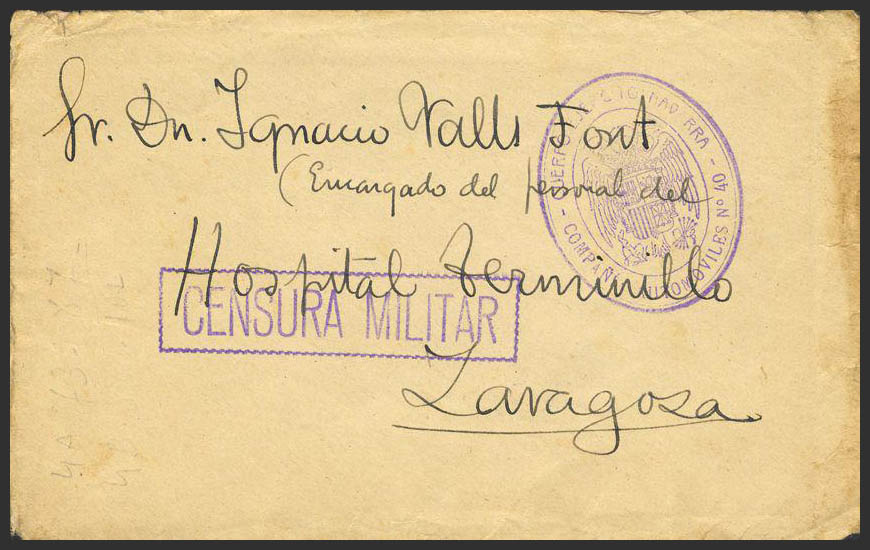 Sr. Dn. Ignacio Valls Font
(Encargado del personal del
Hospital Terminillo
Zaragoza
CENSURA MILITAR
COMPAÑIA AUTOMOVILES Nº 40